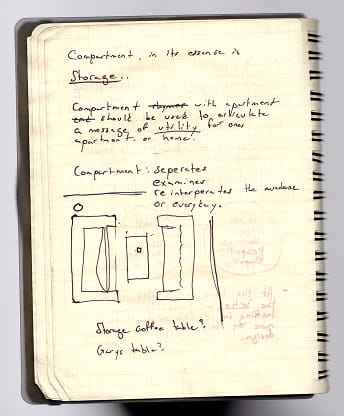 Compartment, in its essense is
Storage..
Compartment rhymes with apartment
and should be used to articulate
a message of utility for ones
apartment. or home.
Compartment: seperates
examines
reinterperates the mundane
or everyday.
Storage coffee table?
Garys table?
At the
the
looking in
design.